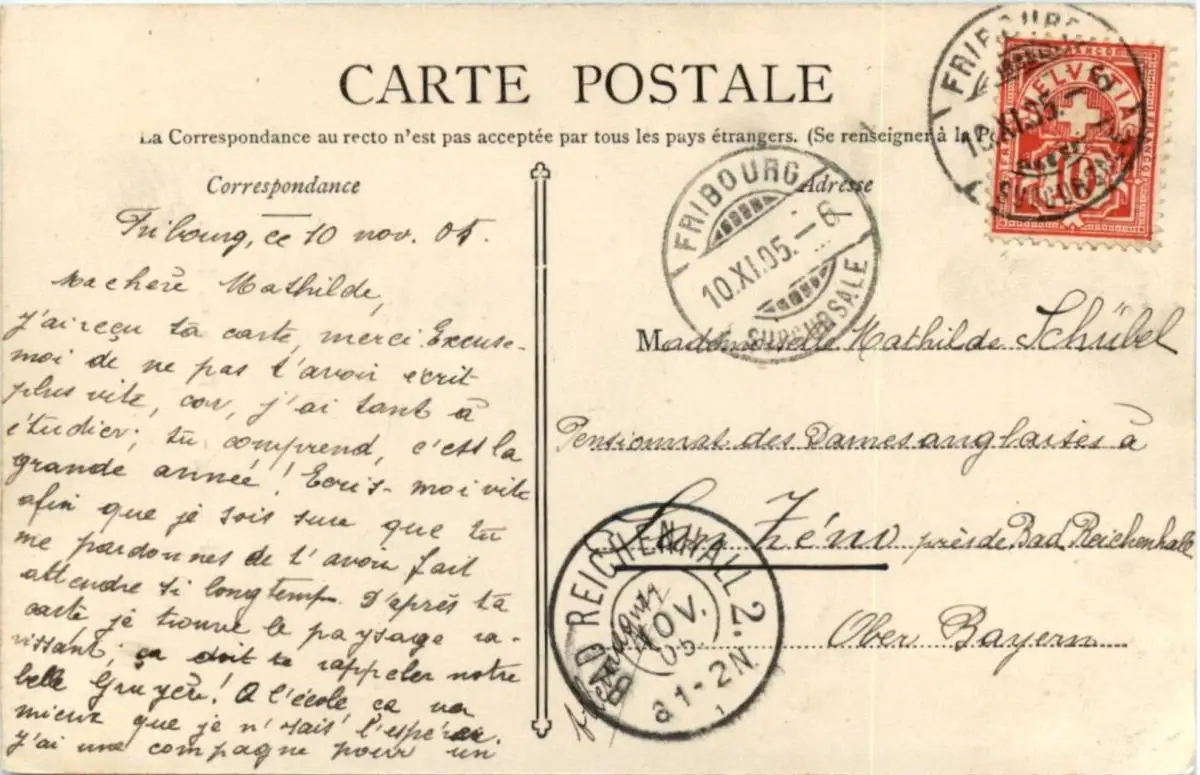 CARTE POSTALE
La Correspondance au recto n'est pas acceptée par tous les pays étrangers. (Se renseigner à la
Correspondance
Fribourg, ce 10 nov. 05.
Ma chère Mathilde,
J'ai reçu ta carte, merci. Excuse-
moi de ne pas t'avoir écrit
plus vite, car, j'ai tant à
étudier; tu comprend, c'est la
grande année! Ecris-moi vite
afin que je sois sure que tu
me pardonnes de t'avoir fait
attendre si longtemp. D'après ta
carte je trouve le paysage ra-
vissant; ça doit te rappeler notre
belle Gruyère! A l'école ça va
mieux que je n'sais l'espérer.
J'ai une compagne pour un
Adresse
Mademoiselle Mathilde Schübel
Pensionnat des Dames anglaises à
San Zéno près de Bad Reichenhall
Ober Bayern
FRIBOURG
10.XI.05.—6
SUCCURSALE
FRIBOURG
10.XI.05.—6
SUCCURSALE
HELVETIA
FRANCO
10
BAD REICHENHALL 2.
NOV.
05
1-2N.